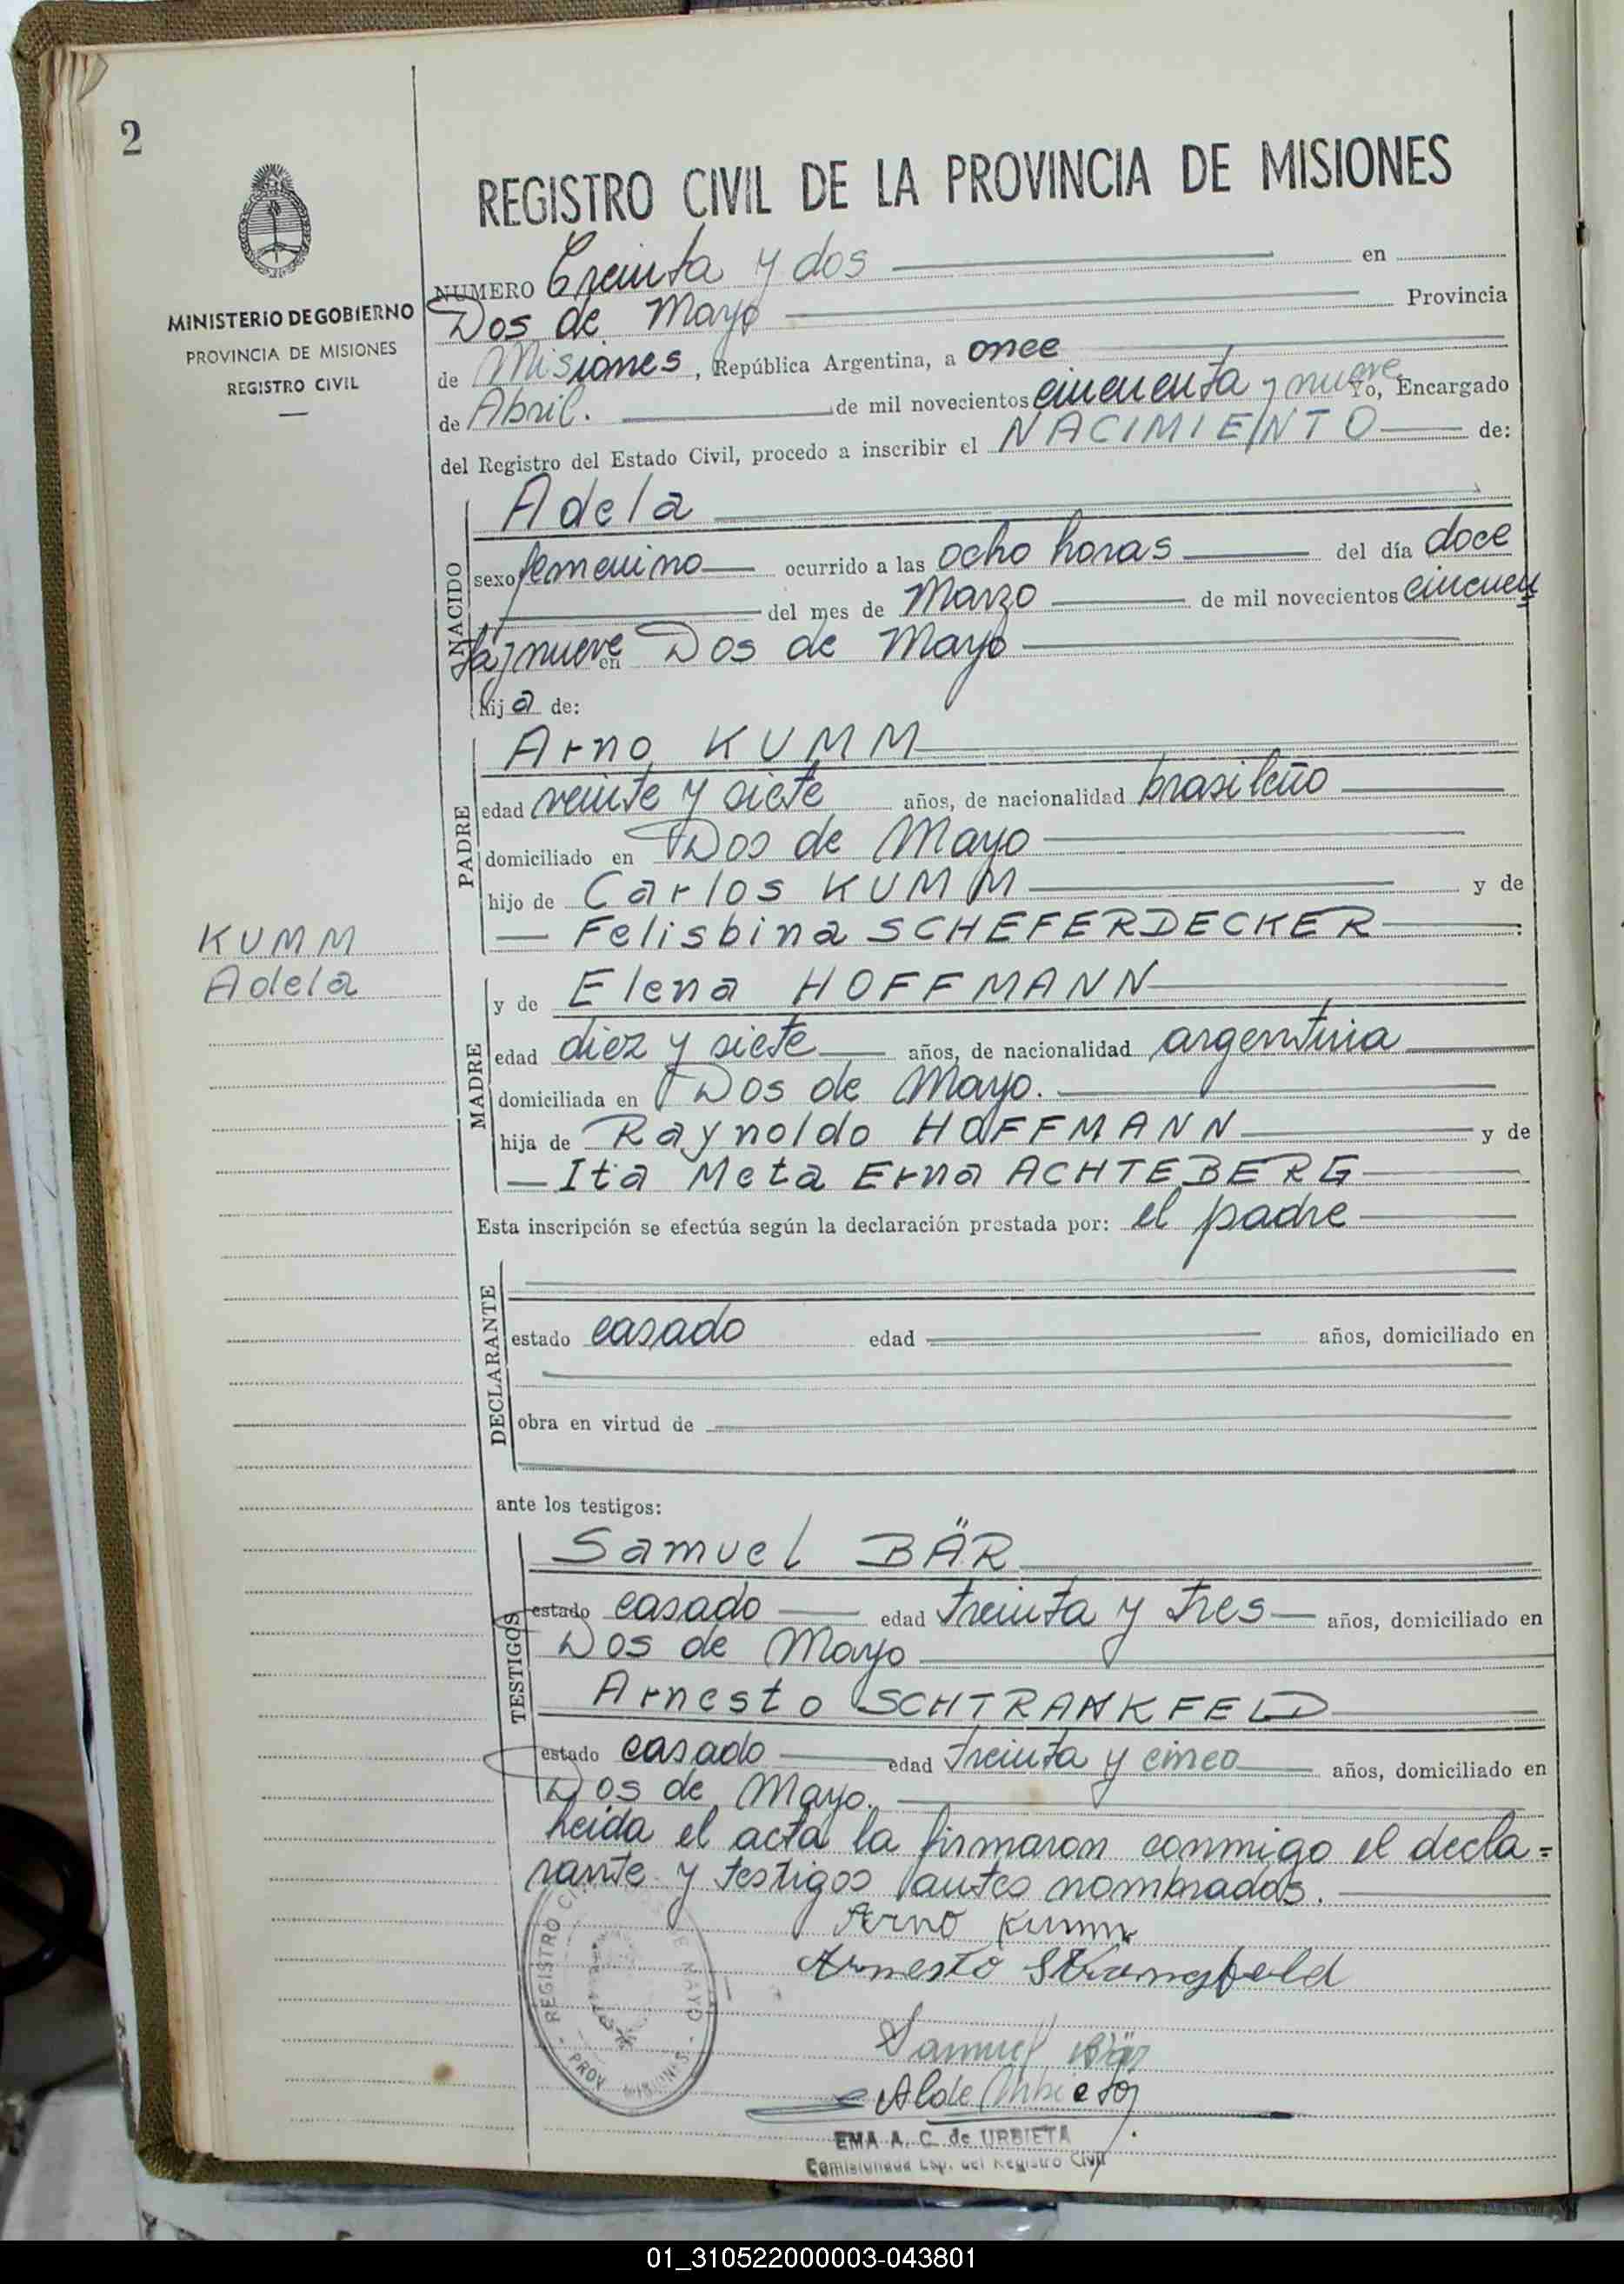 2
MINISTERIO DE GOBIERNO
PROVINCIA DE MISIONES
REGISTRO CIVIL
REGISTRO CIVIL DE LA PROVINCIA DE MISIONES
NUMERO Treinta y dos en
Dos de Mayo Provincia
de Misiones, República Argentina, a once
de Abril. de mil novecientos cincuenta y nueve Yo, Encargado
del Registro del Estado Civil, procedo a inscribir el NACIMIENTO de:
NACIDO
Adela
sexo femenino ocurrido a las ocho horas del día doce
del mes de Marzo de mil novecientos cincuen
ta y nueve en Dos de Mayo
hija de:
PADRE
Arno KUMM
edad veinte y siete años, de nacionalidad brasileño
domiciliado en Dos de Mayo
hijo de Carlos KUMM y de
Felisbina SCHEFERDECKER
KUMM
Adela
MADRE
y de Elena HOFFMANN
edad diez y siete años, de nacionalidad argentina
domiciliada en Dos de Mayo.
hija de Raynoldo HOFFMANN y de
Ita Meta Erna ACHTEBERG
Esta inscripción se efectúa según la declaración prestada por: el padre
DECLARANTE
estado casado edad años, domiciliado en
obra en virtud de
ante los testigos:
TESTIGOS
Samuel BÄR
estado casado edad treinta y tres años, domiciliado en
Dos de Mayo
Arnesto SCHTRANKFELD
estado casado edad treinta y cinco años, domiciliado en
Dos de Mayo.
Leida el acta la firmaron conmigo el decla=
rante y testigos antes nombrados.
Arno Kumm
Arnesto
Samuel Bär
REGISTRO DE MAYO
PROV. MISIONES
EMA A. C. de URBIETA
Comisionada Esp. del Registro Civil
01_310522000003-043801